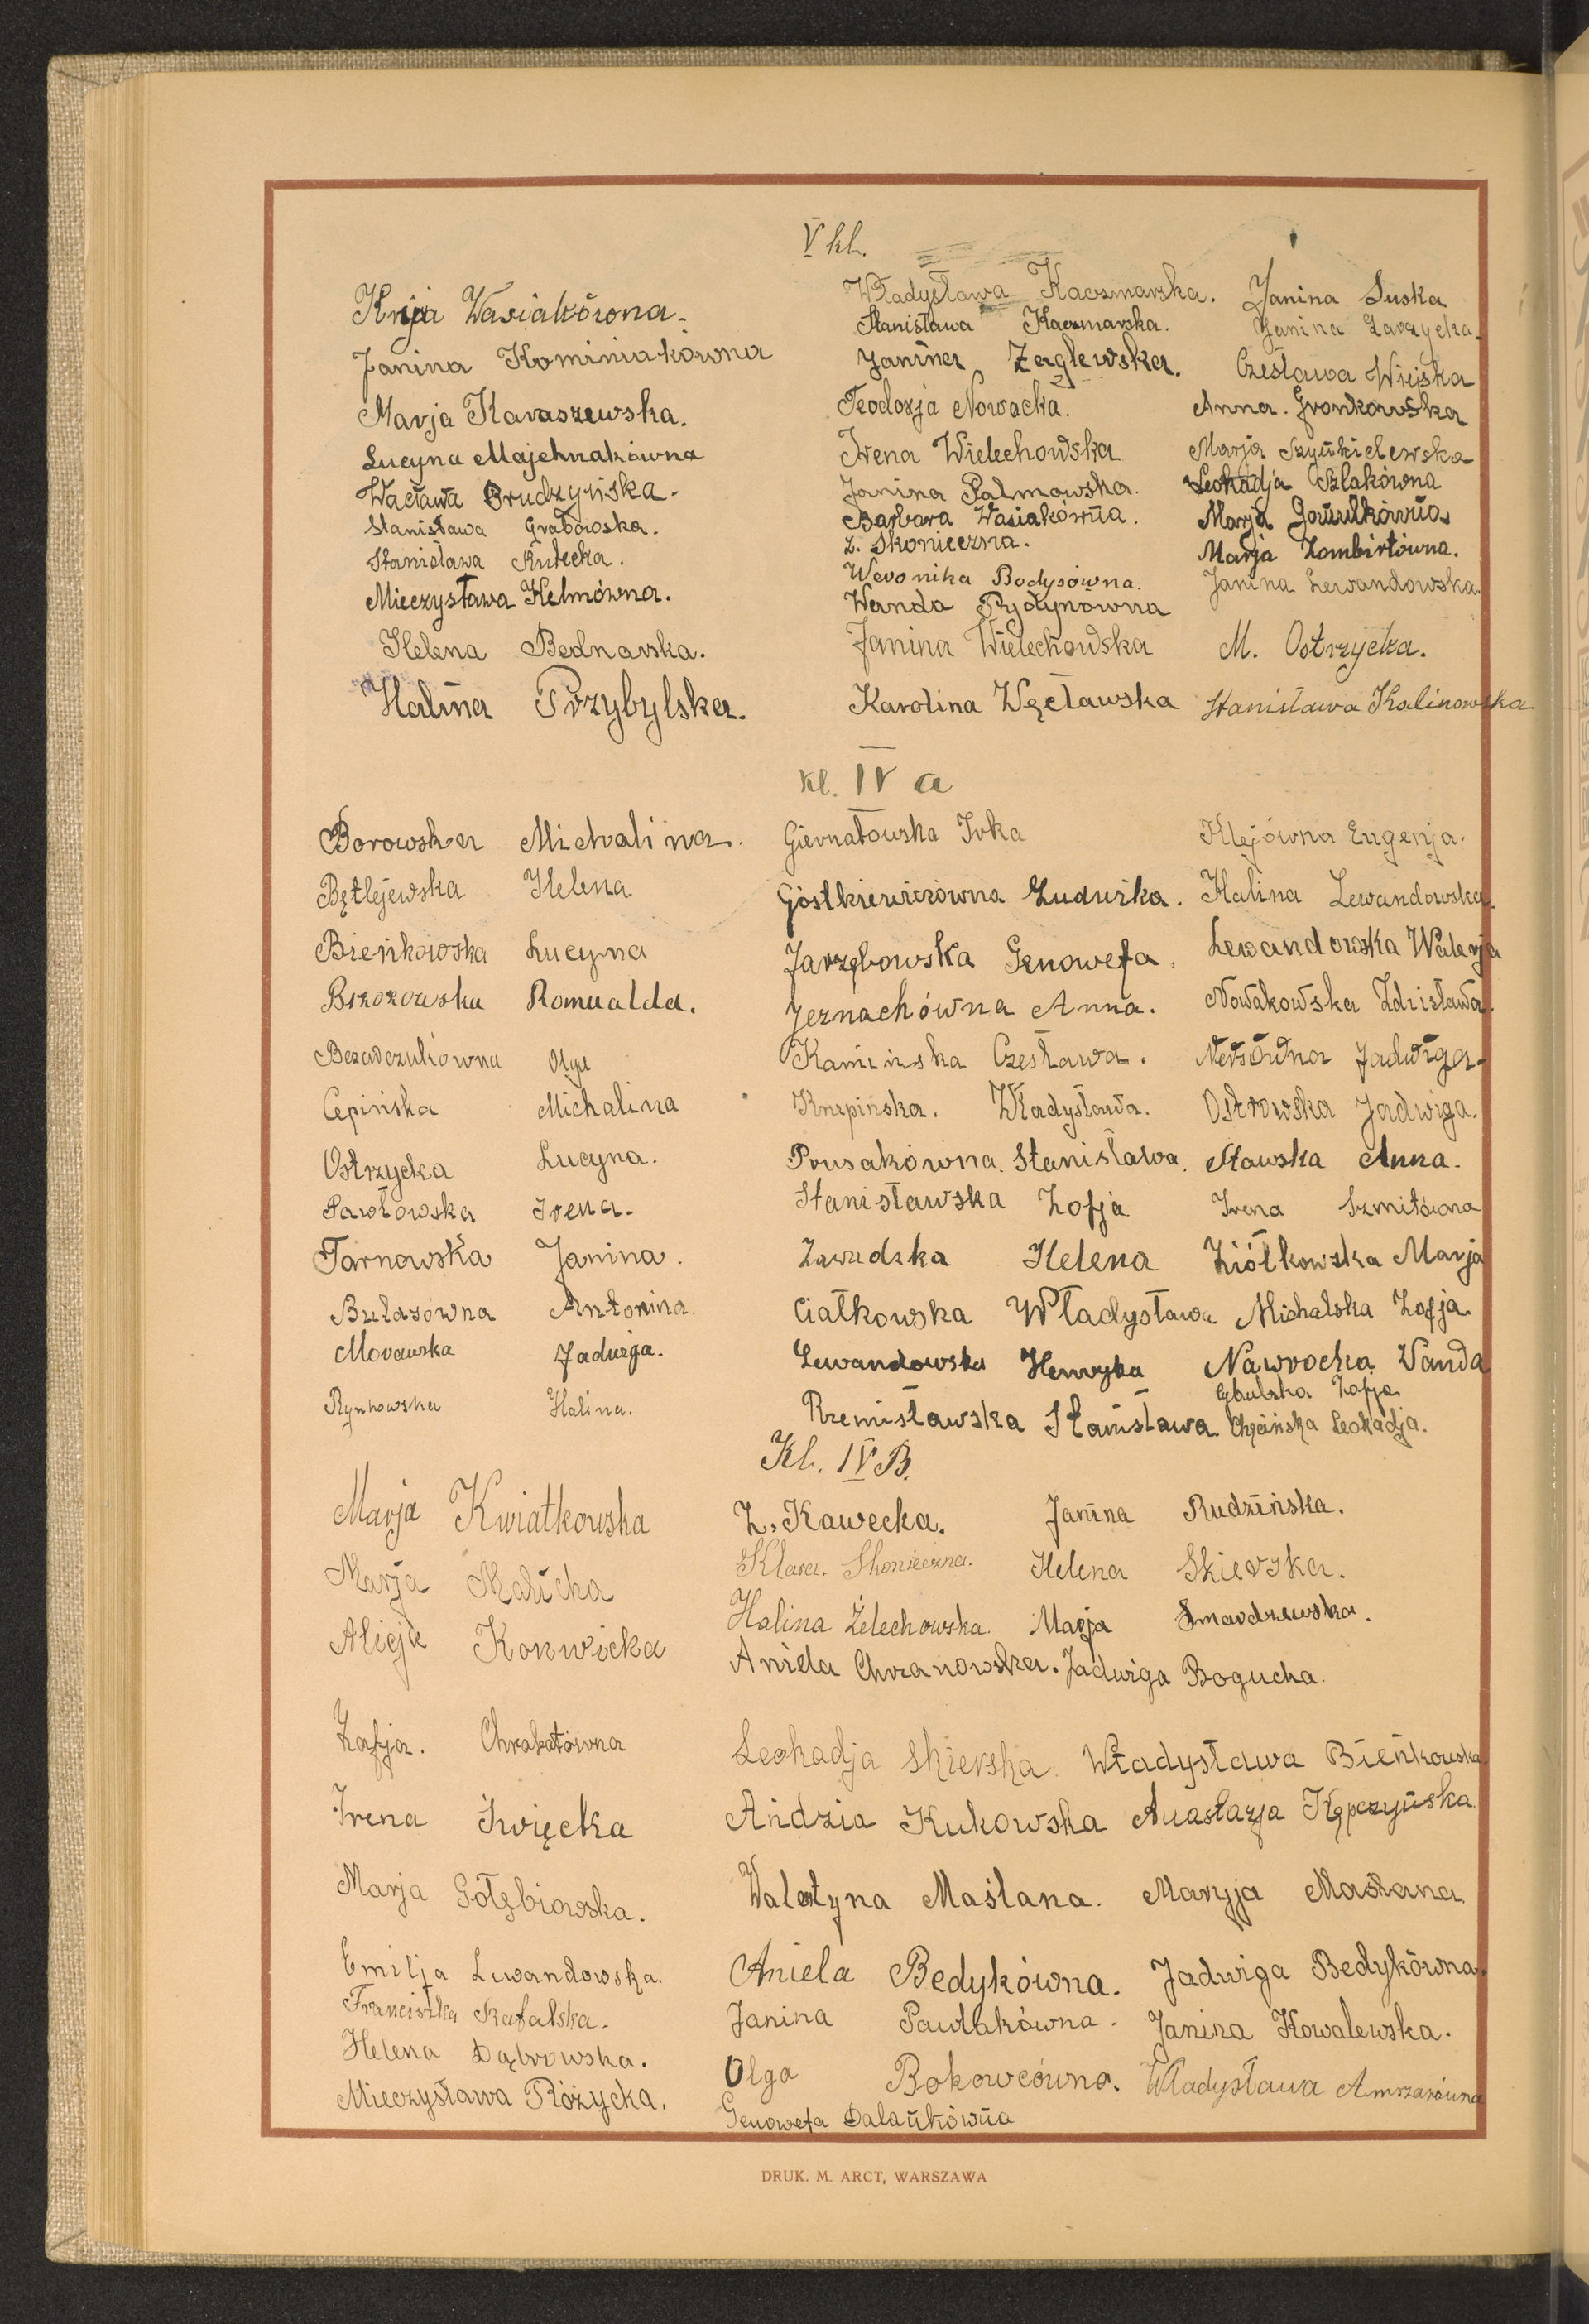 V kl.
Kryja Wasiakówna.
Janina Kominiakówna
Marja Karaszewska.
Lucyna Majchnakówna
Wacława Brudzyńska.
Stanisława Grabowska.
Stanisława Rutecka.
Mieczysława Helmówna.
Helena Bednarska.
Halina Przybylska.
Władysława Kaczmarska.
Stanisława Kaczmarska.
Janina Żaglewska.
Teodozja Nowacka.
Irena Wielechowska
Janina Palmowska.
Barbara Wasiakówna.
Z. Skonieczna.
Weronika Bodysówna.
Wanda Pydynówna
Janina Wielechowska
Karolina Węcławska
Janina Suska
Janina Zarzycka.
Czesława Wiejska
Anna. Gronkowska
Marja Szynkielewska
Leokadja Szlakówna
Marja
Marja Zombirtówna.
Janina Lewandowska.
M. Ostrzycka.
Stanisława Kalinowska
kl. IV a
Borowska Michalina.
Bętlejewska Helena
Bieńkowska Lucyna
Brzozowska Romualda.
Bezadczukówna Olga
Cepińska Michalina
Ostrzycka Lucyna.
Pawłowska Irena.
Tarnowska Janina.
Butasówna Antonina.
Morawska Jadwiga.
Rynkowska Halina.
Giernatowska Irka
Gostkiewiczówna Ludwika.
Jarzębowska Genowefa.
Jeznachówna Anna.
Kamińska Czesława.
Knapińska. Władysława.
Prusakówna. Stanisława.
Stanisławska Zofja
Zawadzka Helena
Ciałkowska Władysława
Lewandowska Henryka
Przemisławska Stanisława.
Klejówna Eugenja.
Halina Lewandowska.
Lewandowska Walerja
Nowakowska Zdzisława.
Nersówna Jadwiga.
Ostrowska Jadwiga.
Sławska Anna.
Irena Szmitówna
Ziółkowska Marja
Michalska Zofja.
Nawrocka Wanda
Cybulska Zofja
Chęcińska Leokadja.
Kl. IV B.
Marja Kwiatkowska
Marja Malicka
Alicja Konwicka
Zofja. Chrabałówna
Irena Święcka
Marja Gołębiowska.
Emilja Lewandowska.
Franciszka Rafalska.
Helena Dąbrowska.
Mieczysława Różycka.
Z. Kawecka.
Klara. Skonieczna.
Halina Żelechowska.
Aniela Chranowska.
Leokadja Skierska.
Andzia Kukowska
Walętyna Maślana.
Aniela Bedykówna.
Janina Pawlakówna.
Olga Bokowcówna.
Genowefa Dalankówna
Janina Rudzińska.
Helena Skierska.
Marja Smardzewska.
Jadwiga Bogucka.
Władysława Bieńkowska.
Anastazja Kępczyńska.
Maryja Maślana.
Jadwiga Bedykówna.
Janina Kowalewska.
Władysława Amszazówna
DRUK. M. ARCT, WARSZAWA